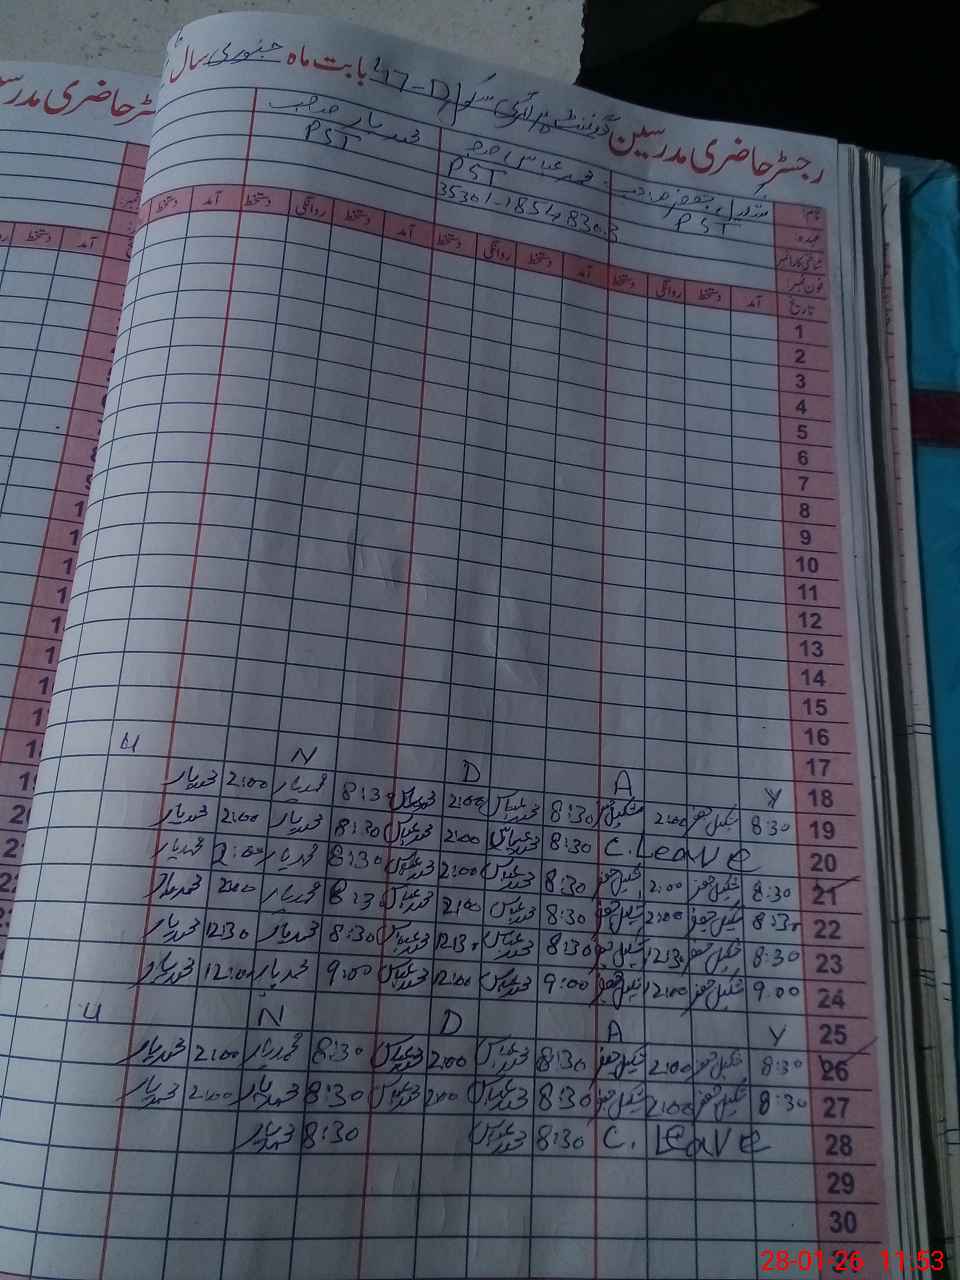 رجسٹر حاضری مدرسین گورنمنٹ پرائمری سکول 47-D بابت ماہ جنوری سال
نام: شکیل جعفر صاحب محمد عباس صاحب محمد یار صاحب
عہدہ PST PST PST
شناختی کارڈ نمبر 35301-1854830-3
فون نمبر:
تاریخ آمد دستخط روانگی دستخط آمد دستخط روانگی دستخط آمد دستخط روانگی دستخط آمد دستخط
1
2
3
4
5
6
7
8
9
10
11
12
13
14
15
16
17
18 Y A D N U
19 8:30 شکیل جعفر 2:00 شکیل جعفر 8:30 محمد عباس 2:00 محمد عباس 8:30 محمد یار 2:00 محمد یار
20 C. Leave 8:30 محمد عباس 2:00 محمد عباس 8:30 محمد یار 2:00 محمد یار
21 8:30 شکیل جعفر 2:00 شکیل جعفر 8:30 محمد عباس 2:00 محمد عباس 8:30 محمد یار 2:00 محمد یار
22 8:30 شکیل جعفر 2:00 شکیل جعفر 8:30 محمد عباس 2:00 محمد عباس 8:30 محمد یار 2:00 محمد یار
23 8:30 شکیل جعفر 12:30 شکیل جعفر 8:30 محمد عباس 12:30 محمد عباس 8:30 محمد یار 12:30 محمد یار
24 9:00 شکیل جعفر 12:00 شکیل جعفر 9:00 محمد عباس 12:00 محمد عباس 9:00 محمد یار 12:00 محمد یار
25 Y A D N U
26 8:30 شکیل جعفر 2:00 شکیل جعفر 8:30 محمد عباس 2:00 محمد عباس 8:30 محمد یار 2:00 محمد یار
27 8:30 شکیل جعفر 2:00 شکیل جعفر 8:30 محمد عباس 2:00 محمد عباس 8:30 محمد یار 2:00 محمد یار
28 C. Leave 8:30 محمد عباس 8:30 محمد یار
29
30
28-01-26 11:53